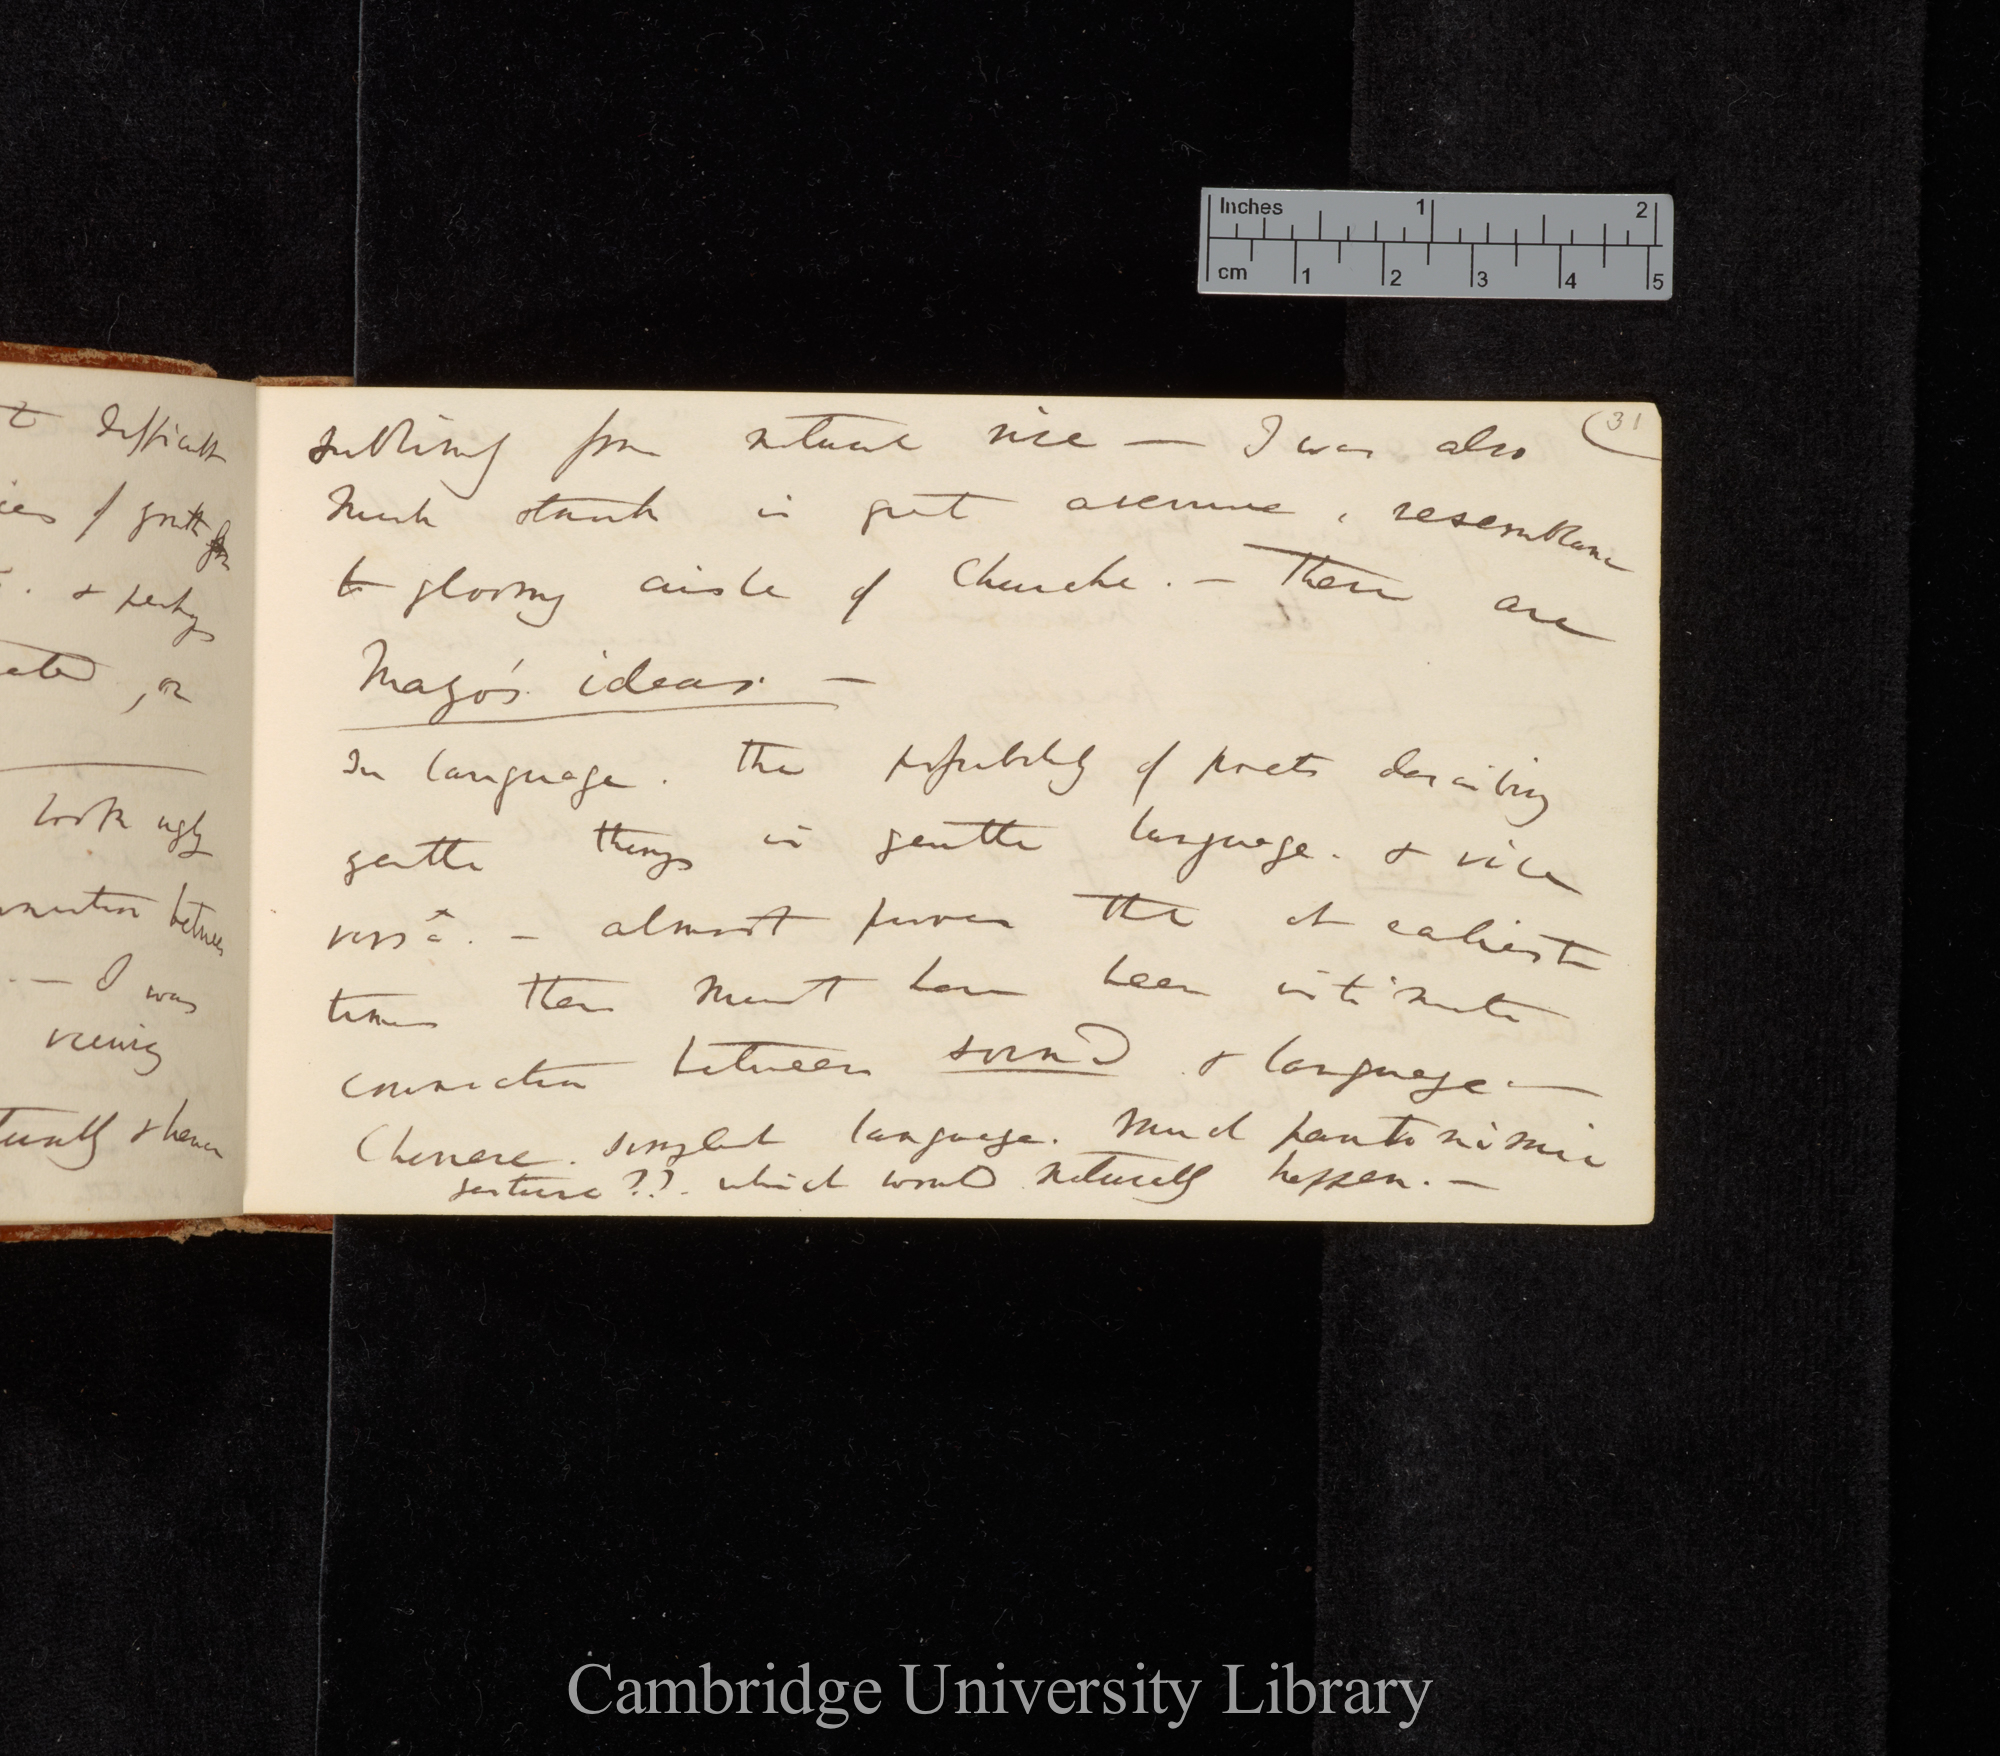 t difficult
ies of gratt for
. & perhaps
ated, or
look ugly
onnection between
. — I was
viewing
turally & hence
(31
sublimity from natural rise — I was also
much struck in great avenue, resemblance
to gloomy aisle of Churche. — There are
Mayo's ideas. —
In language. the possibility of poets describing
gentle things in gentle language. & vice
versâ. — almost proves the at earliest
times there must have been intimate
connection between sound & language. —
Chinese. simplest language. much pantomimic
gesture ??. which would naturally happen. —
Inches 1 2
cm 1 2 3 4 5
Cambridge University Library